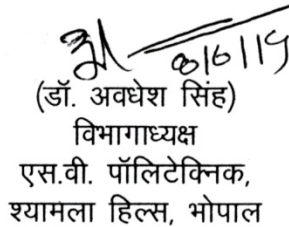 8/6/15
(डॉ. अवधेश सिंह)
विभागाध्यक्ष
एस.वी. पॉलिटेक्निक,
श्यामला हिल्स, भोपाल